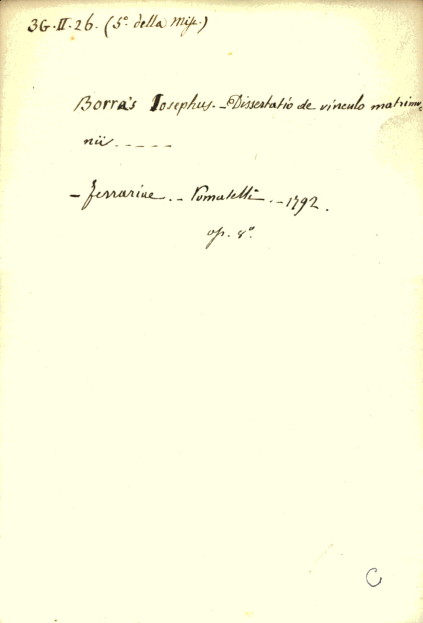 36.II.26. (5º della Misc.)
Borrás Iosephus. - Dissertatio de vinculo matrimo-
nii - - - - -
- Ferrariae. - Pomatelli. - 1792.
op. 8º.
C